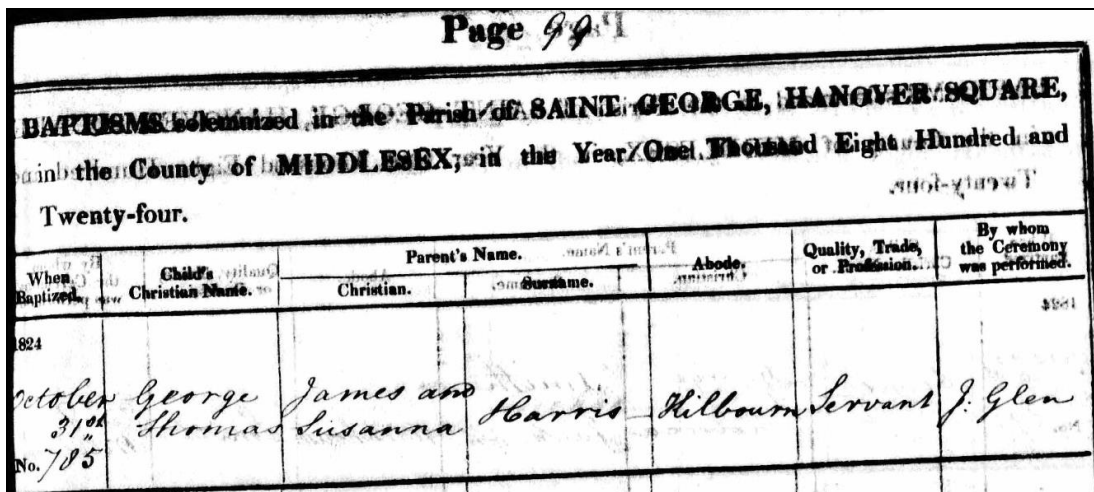 Page 99
BAPTISMS solemnized in the Parish of SAINT GEORGE, HANOVER SQUARE,
in the County of MIDDLESEX, in the Year One Thousand Eight Hundred and
Twenty-four.
When Baptized. Child's Christian Name. Parent's Name. Christian. Surname. Abode. Quality, Trade, or Profession. By whom the Ceremony was performed.
1824
October George James and Harris Kilbourn Servant J. Glen
31st Thomas Susanna
No. 785